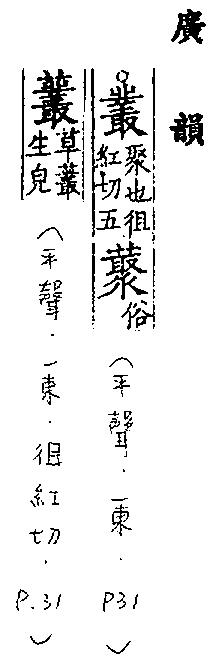 廣韻
叢聚也徂紅切五藂俗(平聲.一東.P31)
叢草叢生皃(平聲.一東.徂紅切.P.31)